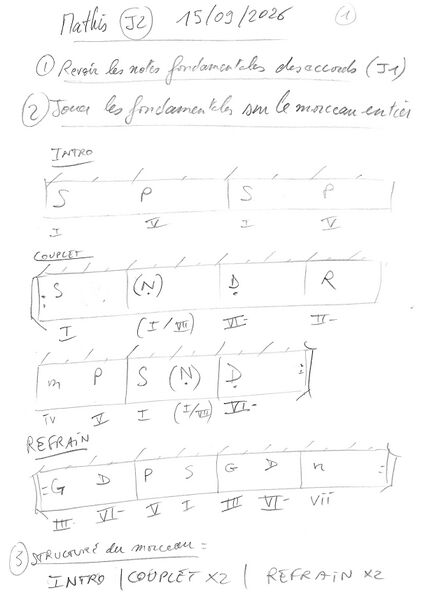 Mathis (J2) 15/09/2026 (1)
(1) Revoir les notes fondamentales des accords (J1)
(2) Jouer les fondamentales sur le morceau entier
INTRO
S P S P
I V I V
COUPLET
S (Ṇ) Ḍ R
I (I/VII) VI- II-
m P S (Ṇ) Ḍ
iv V I (I/VII) VI-
REFRAIN
G D P S G D n
III VI- V I III VI- vii
(3) STRUCTURE du morceau =
INTRO | COUPLET x2 | REFRAIN x2